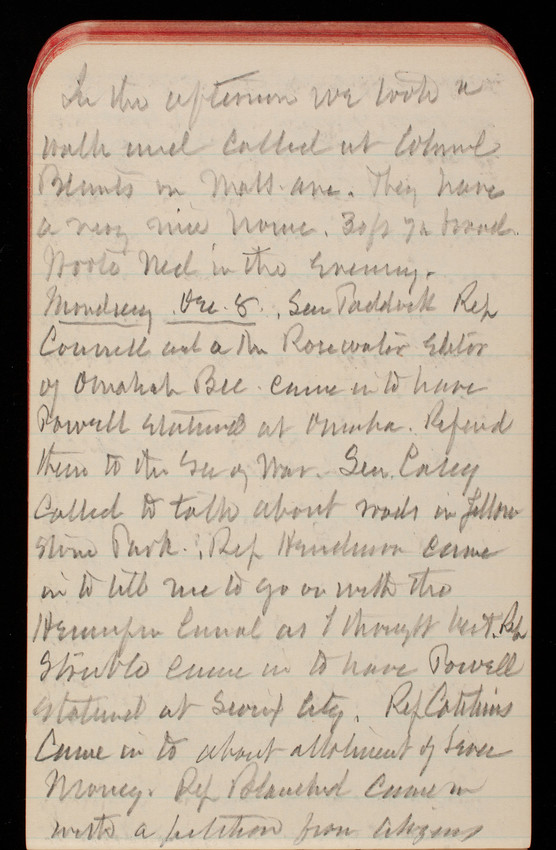 In the afternoon we took a
walk and called at Colonel
Blunts on Mass. ave. They have
a very nice home.
Wrote Ned in the Evening.
Monday, Dec. 8. Sen Paddock Rep
Connell and a Mr Rosewater Editor
of Omahah Bee. came in to have
Powell stationed at Omaha. Referred
them to the Sec of War. Sen. Casey
Called to talk about roads in Yellow
stone Park. Rep Henderson came
in to tell me to go on with the
Hennepin Canal as I thought best. Rep
Struble came in to have Powell
stationed at Sioux City. Rep Catchins
Came in to about allotment of
Money. Rep Blanchard came in
with a petition from citizens